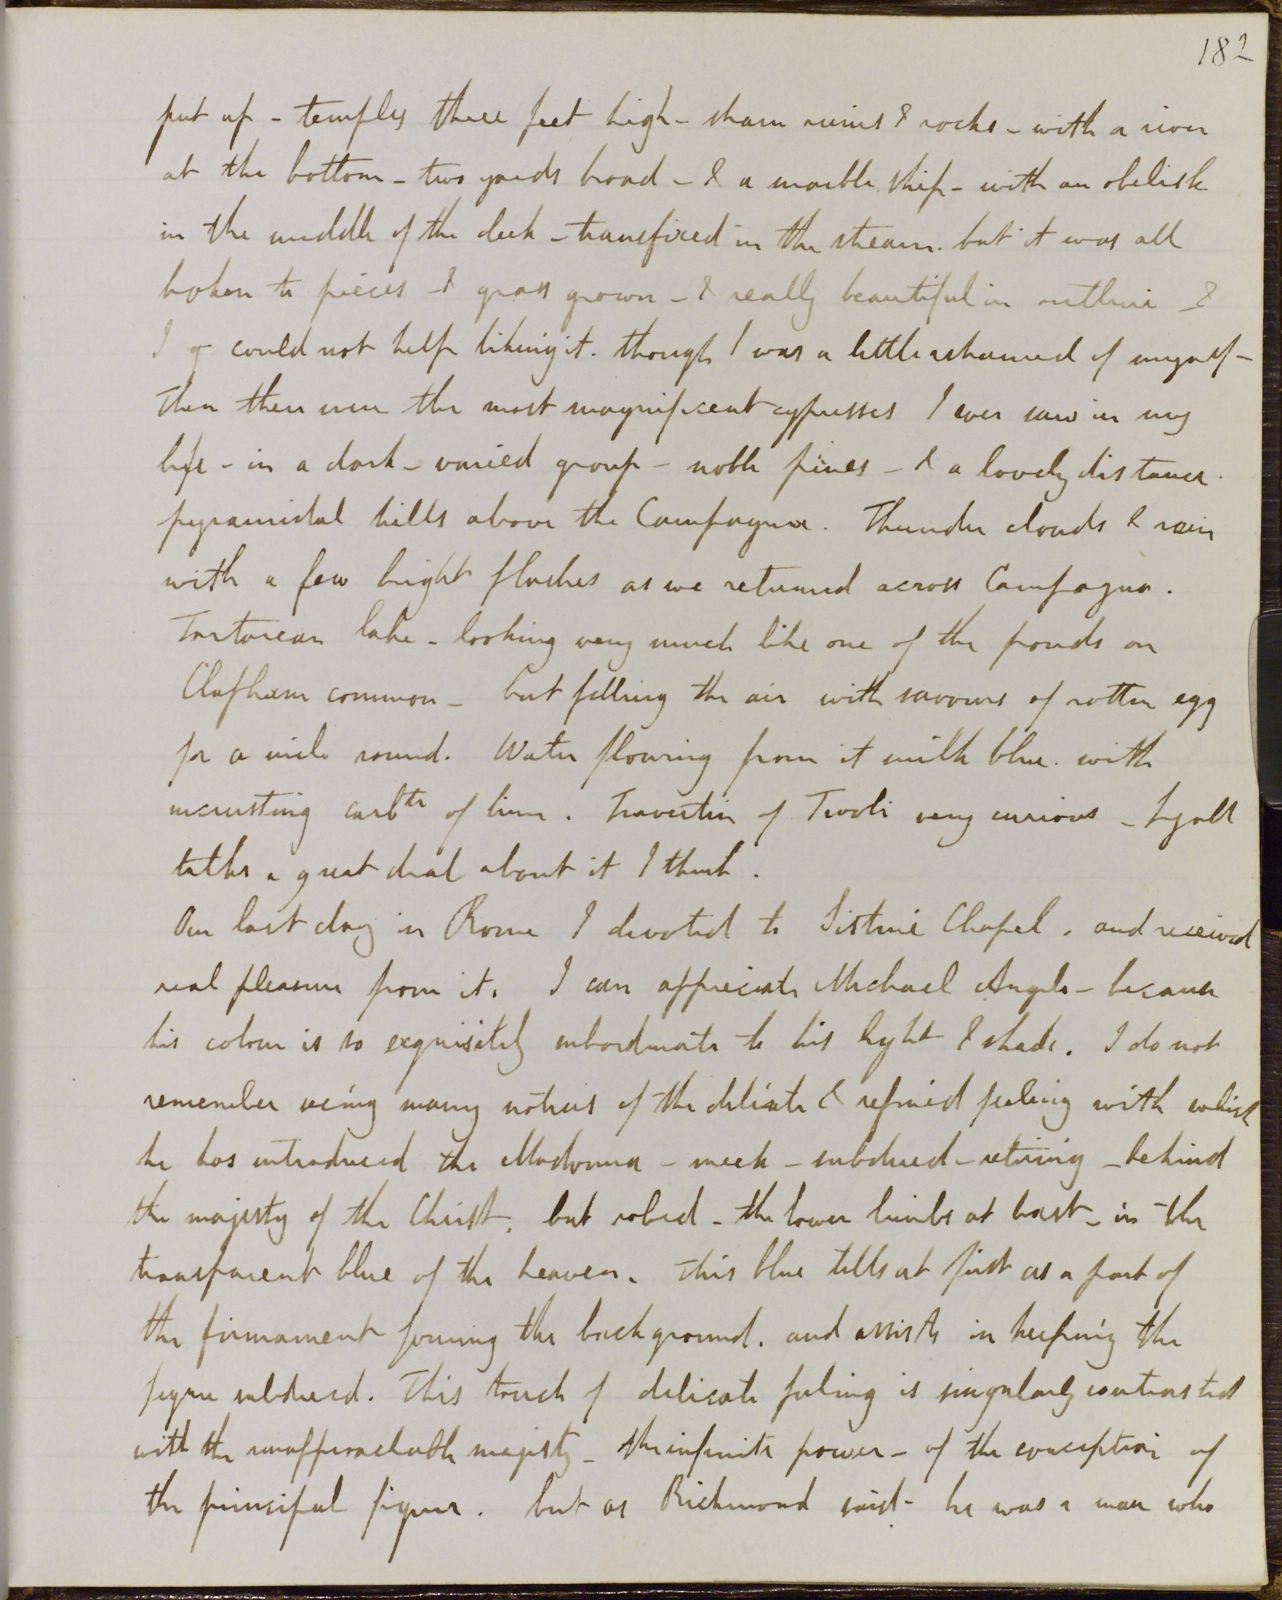 182
put up - temples three feet high - sham ruins & rocks - with a river
at the bottom - two yards broad - & a marble ship - with an obelisk
in the middle of the deck - transfixed in the stream. but it was all
broken to pieces - & grass grown - & really beautiful in outline &
I could not help liking it. though I was a little ashamed of myself -
Then there were the most magnificent cypresses I ever saw in my
life - in a dark - varied group - noble pines - & a lovely distance.
pyramidal hills above the Campagna. Thunder clouds & rain
with a few bright flashes as we returned across Campagna.
Tartarean lake - looking very much like one of the ponds on
Clapham common - but filling the air with savours of rotten egg
for a mile round. Water flowing from it milk blue. with
incrusting carbte of lime. Travertin of Tivoli very curious - Lyell
talks a great deal about it I think.
Our last day in Rome I devoted to Sistine Chapel. and received
real pleasure from it. I can appreciate Michael Angelo - because
his colour is so exquisitely subordinate to his light & shade. I do not
remember seeing many notices of the delicate & refined feeling with which
he has introduced the Madonna - meek - subdued - retiring - behind
the majesty of the Christ. but robed - the lower limbs at least - in the
transparent blue of the heaven. This blue tells at first as a part of
the firmament forming the background. and assists in keeping the
figure subdued. This touch of delicate feeling is singularly contrasted
with the unapproachable majesty - the infinite power - of the conception of
the principal figure. but as Richmond said - he was a man who